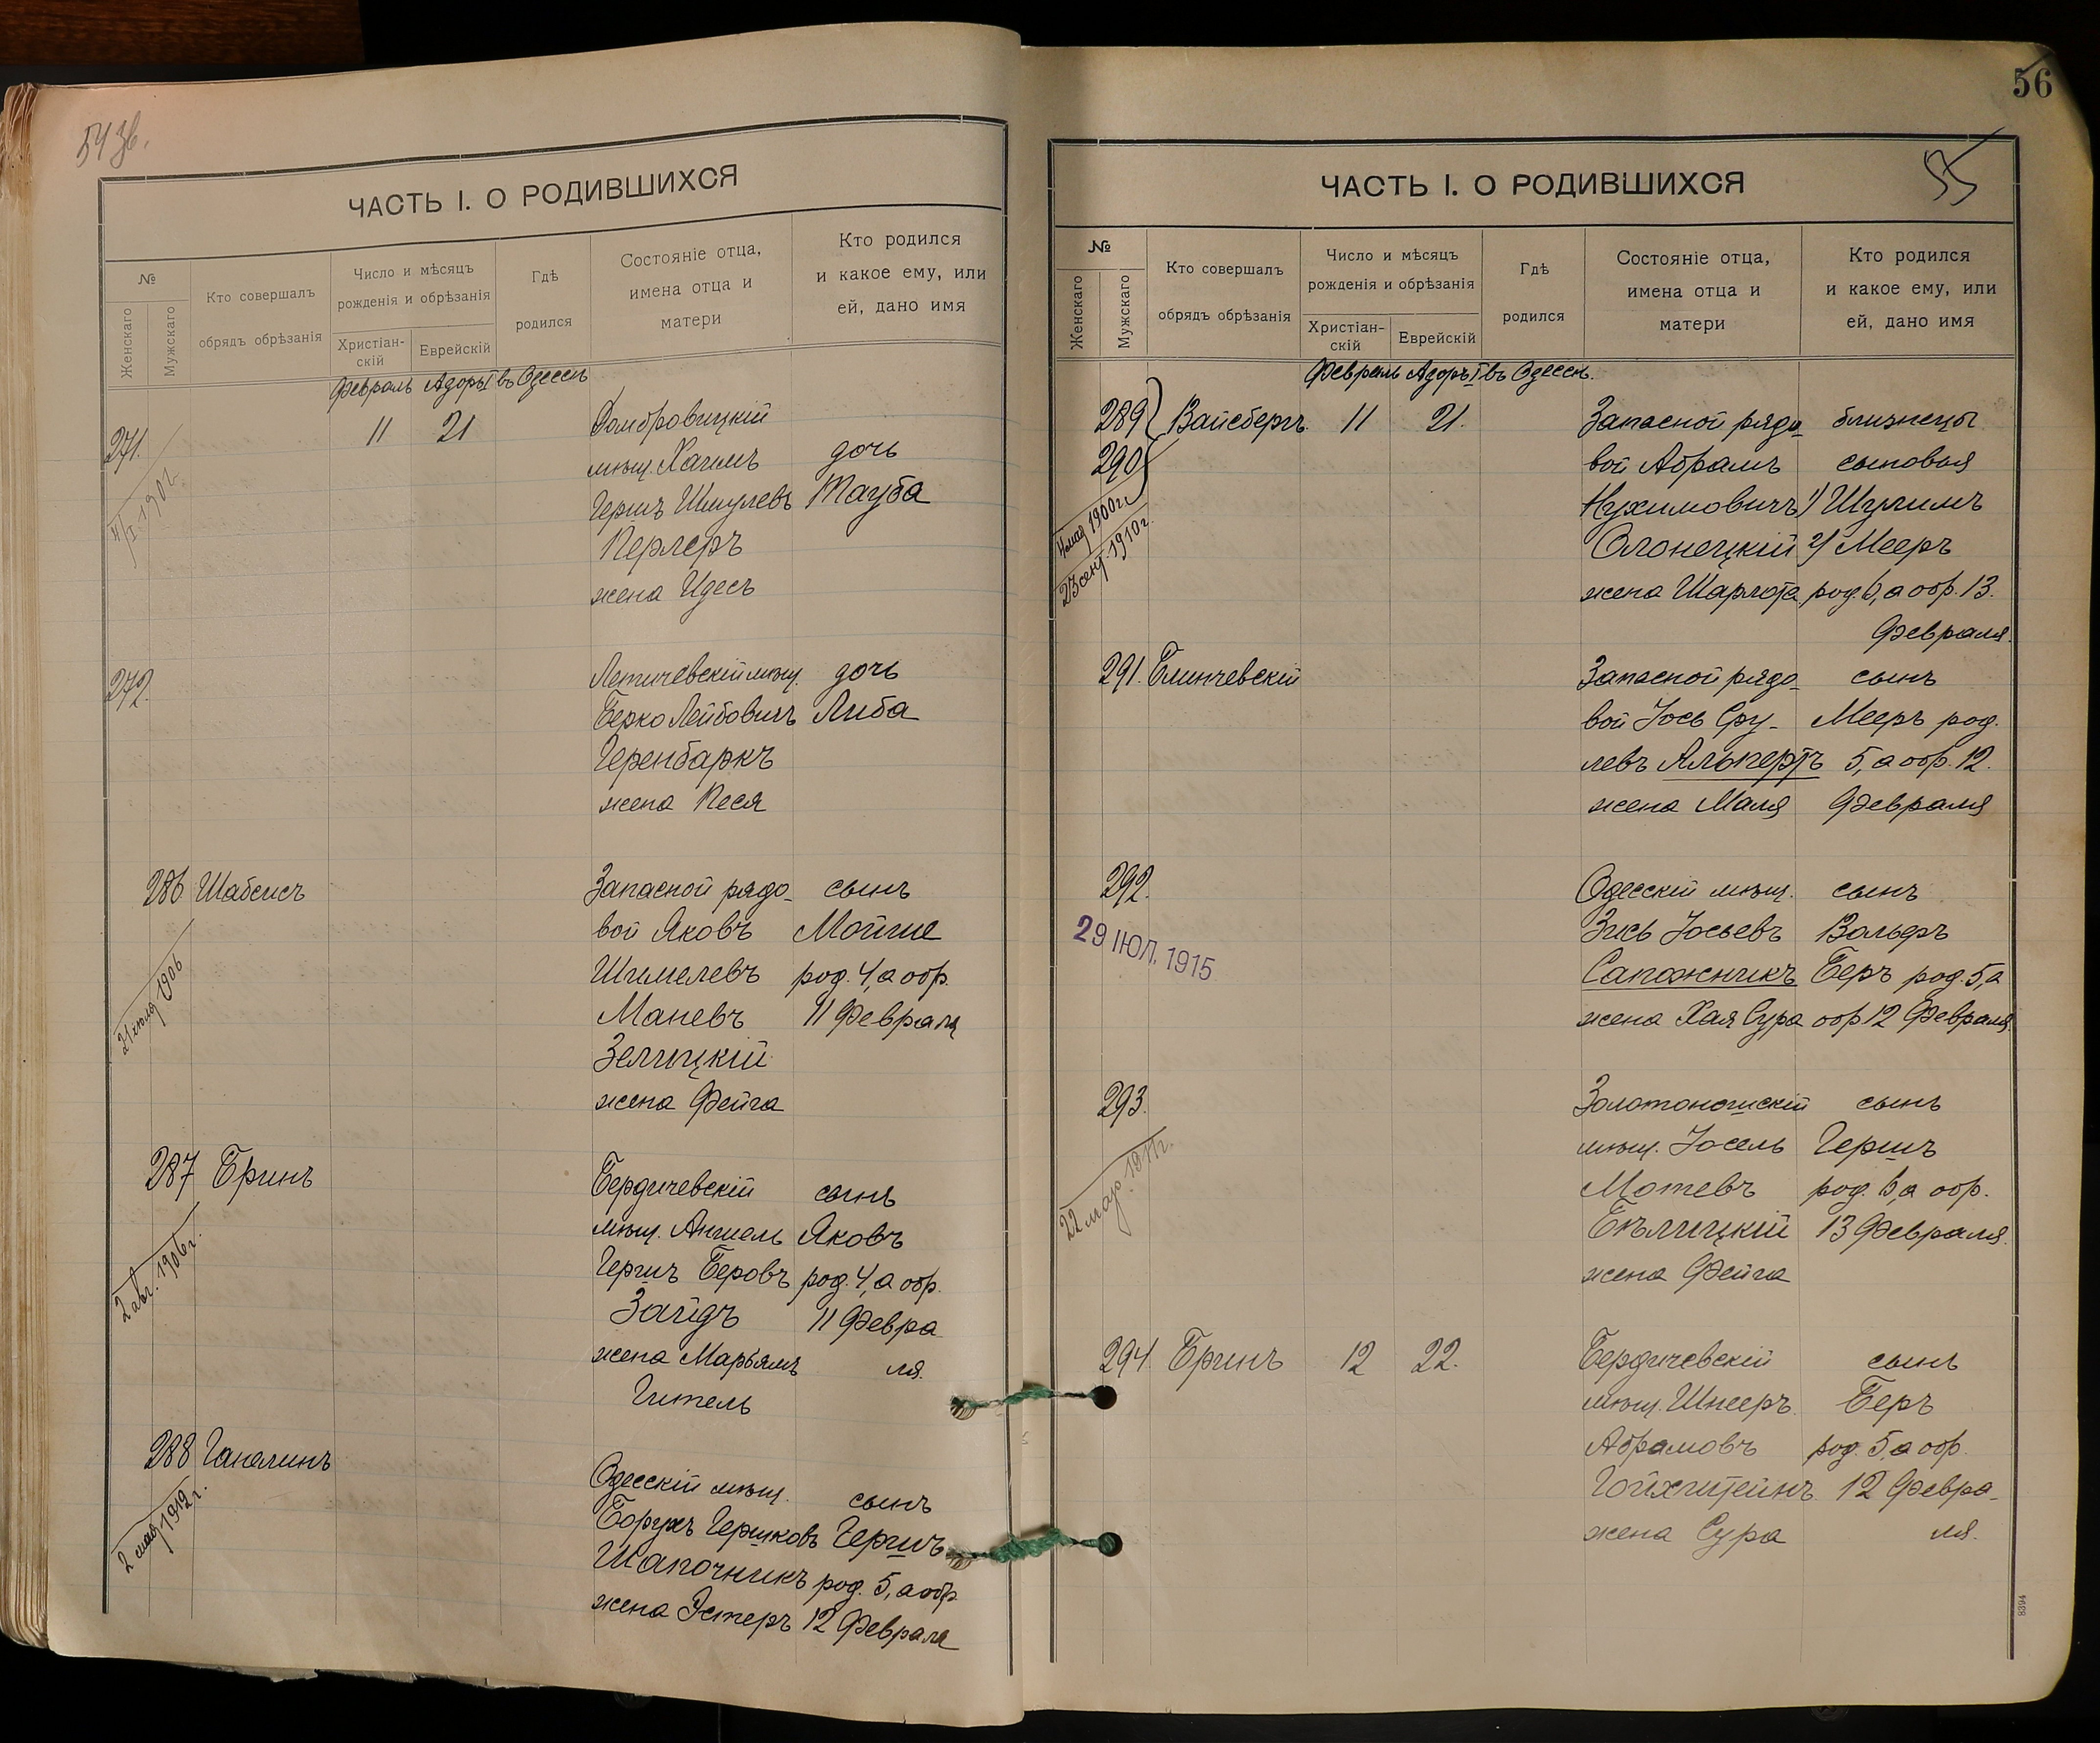 54 зв.
ЧАСТЬ I. О РОДИВШИХСЯ
№
Женскаго
Мужскаго
Кто совершалъ
обрядъ обрѣзанія
Число и мѣсяцъ
рожденія и обрѣзанія
Христіан-
скій
Еврейскій
Гдѣ
родился
Состояніе отца,
имена отца и
матери
Кто родился
и какое ему, или
ей, дано имя
Февраль Адоръ I въ Одессѣ
271. 11 21 Домбровицкій
мѣщ. Хаимъ дочь
Гершъ Шмулевъ Тауба
Перлеръ
жена Идесъ
272. Летичевскій мѣщ. дочь
Берко Лейбовичъ Либа
Геренбаркъ
жена Песя
286 Шабсисъ Запасной рядо- сынъ
вой Яковъ Мойше
Шмелевъ род. 4, а обр.
Маневъ 11 Февраля
Зелицкій
жена Фейга
21 іюля 1906
287 Бринъ Бердичевскій сынъ
мѣщ. Аншель Яковъ
Гершъ Беровъ род. 4, а обр.
Зайдъ 11 Февра
жена Марьямъ ля.
Гитель
2 авг. 1906 г.
288 Ганелинъ Одесскій мѣщ. сынъ
Борухъ Гершковъ Гершъ
Шапочникъ род. 5, а обр
жена Эстеръ 12 Февраля
2 мая 1912 г.
56
55
ЧАСТЬ I. О РОДИВШИХСЯ
№
Женскаго
Мужскаго
Кто совершалъ
обрядъ обрѣзанія
Число и мѣсяцъ
рожденія и обрѣзанія
Христіан-
скій
Еврейскій
Гдѣ
родился
Состояніе отца,
имена отца и
матери
Кто родился
и какое ему, или
ей, дано имя
Февраль Адоръ I въ Одессѣ.
289 Вайсбергъ. 11 21. Запасной рядо- близнецы
290 вой Абрамъ сыновья
Нухимовичъ 1) Шулимъ
Олонецкій 2) Мееръ
жена Шарлота род. 6, а обр. 13.
Февраля.
4 мая 1900 г.
23 сент. 1910 г.
291. Блинчевскій Запасной рядо- сынъ
вой Іось Сру- Мееръ род.
левъ Альпертъ 5, а обр. 12.
жена Маля Февраля
292. Одесскій мѣщ. сынъ
Зись Іосьевъ Вольфъ
Сапожникъ Беръ род. 5, а
жена Хая Сура обр 12 Февраля
29 ІЮЛ. 1915
293. Золотоношскій сынъ
мѣщ. Іосель Гершъ
Мотевъ род. 6, а обр.
Бѣлицкій 13 Февраля.
жена Фейга
22 мар. 1911 г.
294. Бринъ 12 22. Бердичевскій сынъ
мѣщ. Шнееръ Беръ
Абрамовъ род. 5, а обр.
Гойхштейнъ 12 Февра-
жена Сура ля.
8394